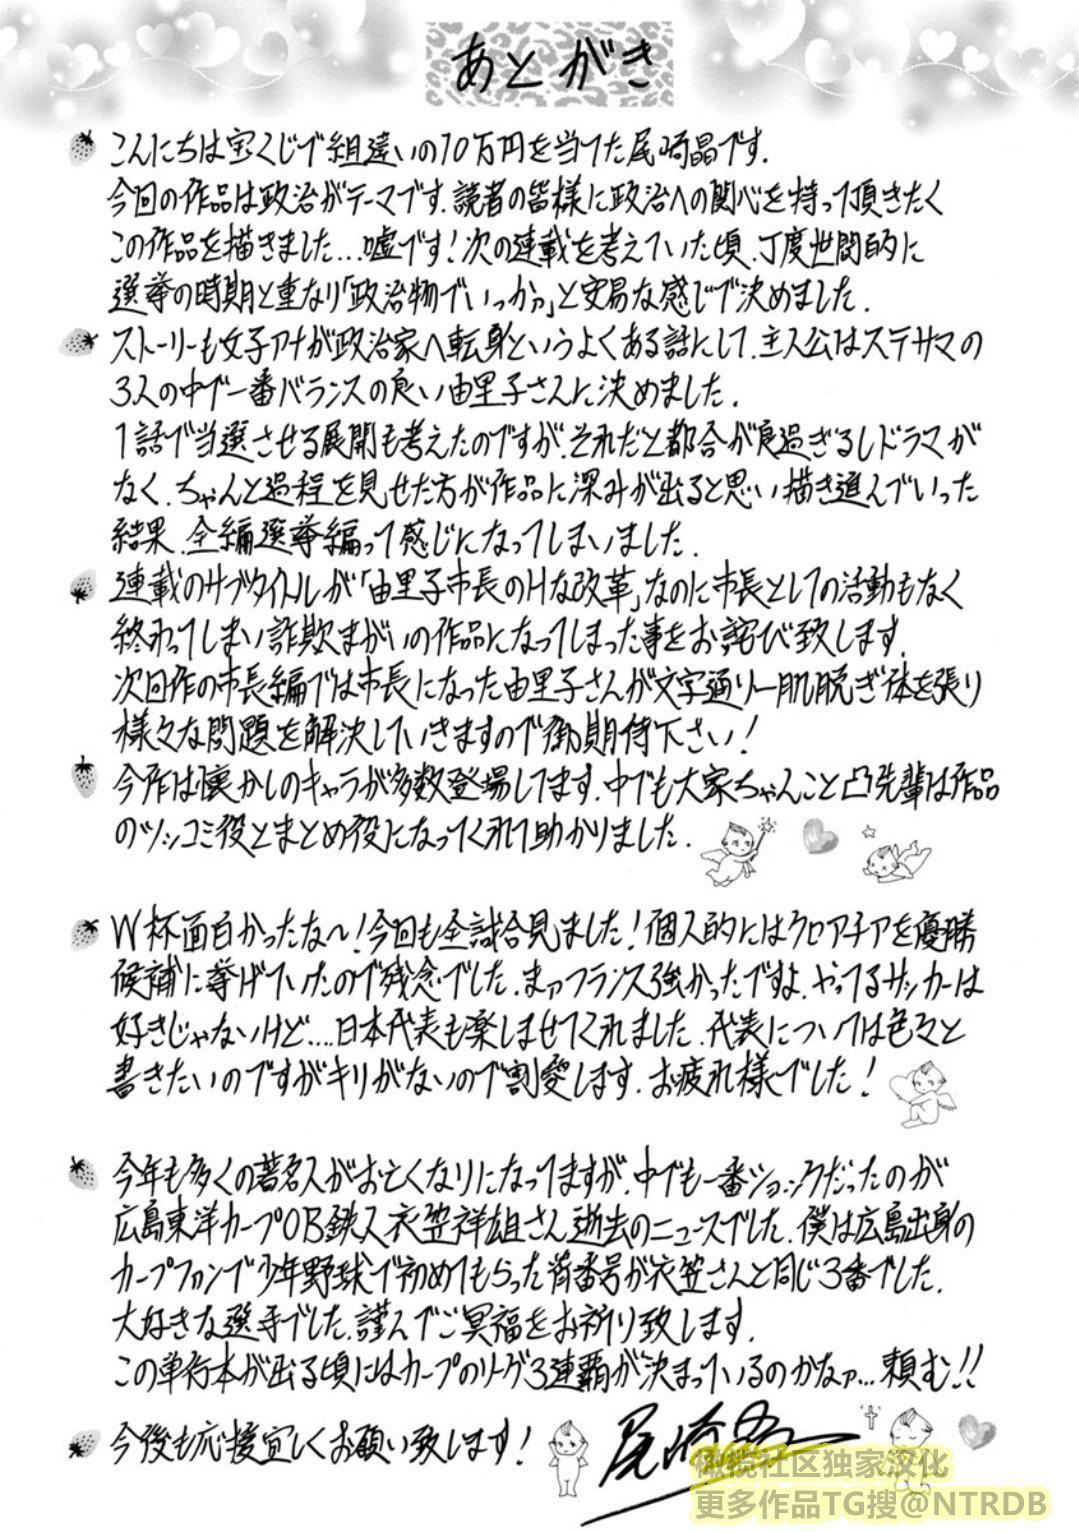 あとがき
こんにちは宝くじで組違いの10万円を当てた尾崎晶です.
今回の作品は政治がテーマです.読者の皆様に政治への関心を持って頂きたく
この作品を描きました...嘘です!次の連載を考えていた頃、丁度世間的に
選挙の時期と重なり「政治物でいっか。」と安易な感じで決めました.
ストーリーも女子アナが政治家へ転身というよくある話にして、主人公はステサマの
3人の中で一番バランスの良い由里子さんに決めました.
1話で当選させる展開も考えたのですが、それだと都合が良過ぎるしドラマが
なく、ちゃんと過程を見せた方が作品に深みが出ると思い描き進んでいった
結果、全編選挙編って感じになってしまいました.
連載のサブタイトルが「由里子市長のHな改革」なのに市長としての活動もなく
終わってしまい詐欺まがいの作品になってしまった事をお詫び致します.
次回作の市長編では市長になった由里子さんが文字通り一肌脱ぎ体を張り
様々な問題を解決していきますので御期待下さい!
今作は懐かしのキャラが多数登場してます.中でも大家ちゃんこと凸先輩は作品
のツッコミ役とまとめ役になってくれて助かりました.
W杯面白かったな~!今回も全試合見ました!個人的にはクロアチアを優勝
候補に挙げていたので残念でした.まァフランス強かったですよ.やってるサッカーは
好きじゃないけど....日本代表も楽しませてくれました.代表については色々と
書きたいのですがキリがないので割愛します.お疲れ様でした!
今年も多くの著名人がお亡くなりになってますが、中でも一番ショックだったのが
広島東洋カープOB鉄人衣笠祥雄さん逝去のニュースでした.僕は広島出身の
カープファンで少年野球で初めてもらった背番号が衣笠さんと同じ3番でした.
大好きな選手でした.謹んでご冥福をお祈り致します.
この単行本が出る頃にはカープのリーグ3連覇が決まっているのかなァ...頼む!!
今後も応援宜しくお願い致します!
尾崎晶
橄榄社区独家汉化
更多作品TG搜@NTRDB